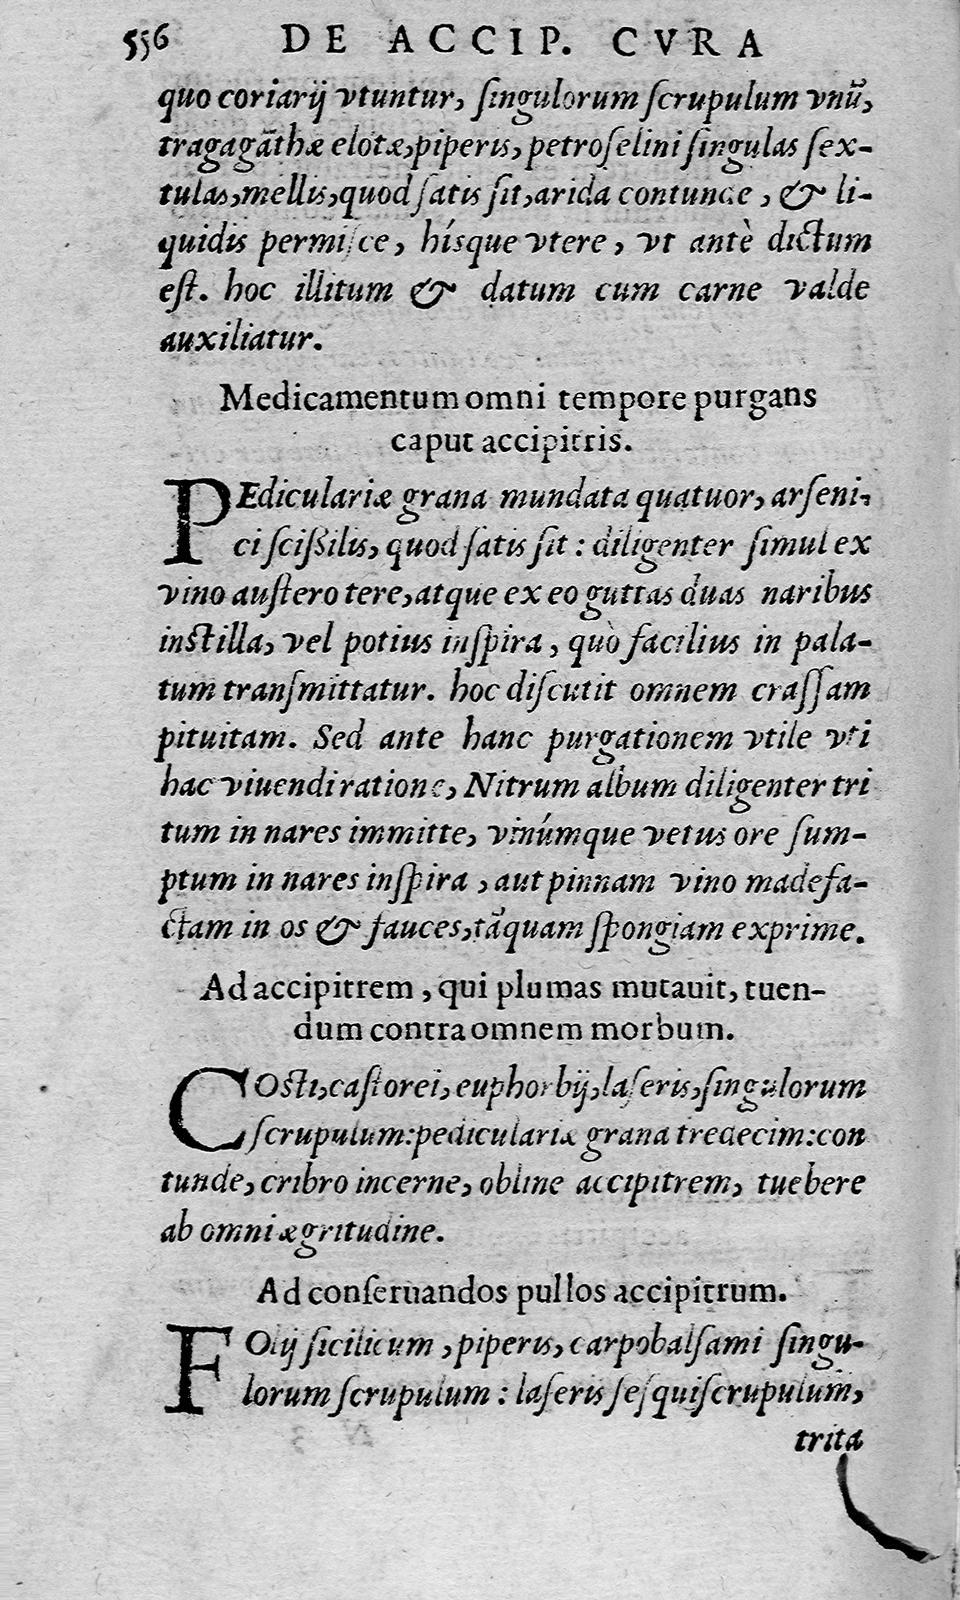 556 DE ACCIP. CVRA
quo coriarij vtuntur, ſingulorum ſcrupulum vnũ,
tragagãthæ elotæ, piperis, petroſelini ſingulas ſex-
tulas, mellis, quod ſatis ſit, arida contunde, & li-
quidis permiſce, hísque vtere, vt antè dictum
eſt. hoc illitum & datum cum carne valde
auxiliatur.
Medicamentum omni tempore purgans
caput accipitris.
PEdiculariæ grana mundata quatuor, arſeni-
ci ſcißilis, quod ſatis ſit: diligenter ſimul ex
vino auſtero tere, atque ex eo guttas duas naribus
inſtilla, vel potius inſpira, quò facilius in pala-
tum tranſmittatur. hoc diſcutit omnem craſſam
pituitam. Sed ante hanc purgationem vtile vti
hac viuendi ratione, Nitrum album diligenter tri
tum in nares immitte, vinúmque vetus ore ſum-
ptum in nares inſpira, aut pinnam vino madefa-
ctam in os & fauces, tãquam ſpongiam exprime.
Ad accipitrem, qui plumas mutauit, tuen-
dum contra omnem morbum.
COſti, caſtorei, euphorbij, laſeris, ſingulorum
ſcrupulum: pediculariæ grana tredecim: con
tunde, cribro incerne, obline accipitrem, tuebere
ab omni ægritudine.
Ad conſeruandos pullos accipitrum.
FOlij ſicilicum, piperis, carpobalſami ſingu-
lorum ſcrupulum: laſeris ſeſquiſcrupulum,
trita